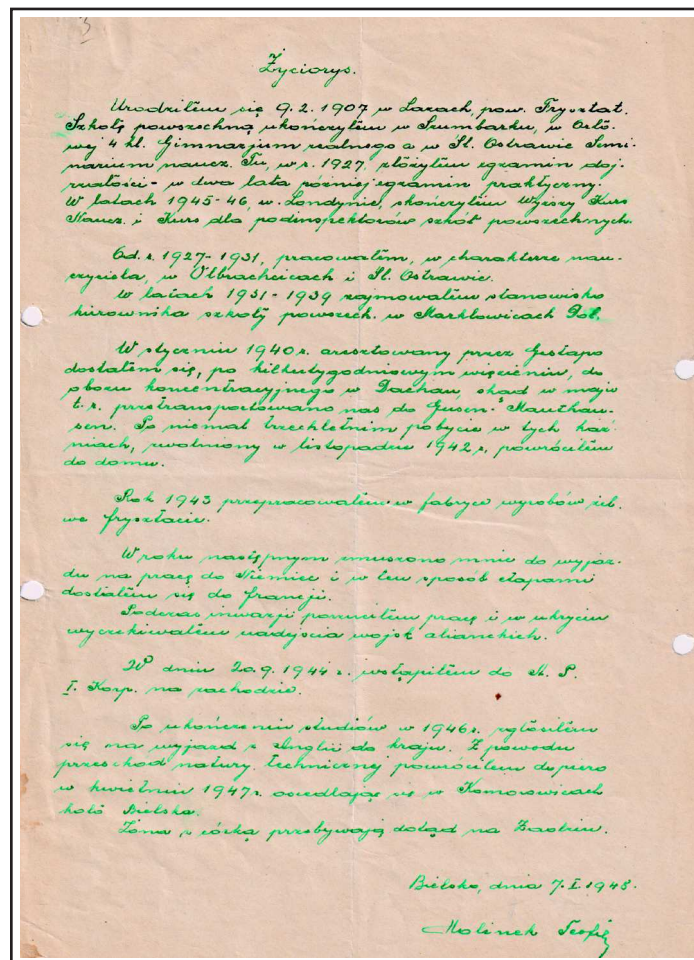 3
Życiorys.
Urodziłem się 9.2.1907 w Łazach, pow. Frysztat.
Szkołę powszechną ukończyłem w Szumbarku, w Orło-
wej 4 kl. Gimnazjum realnego a w Śl. Ostrawie Semi-
narium naucz. Tu, w r. 1927, złożyłem egzamin doj-
rzałości - w dwa lata później egzamin praktyczny.
W latach 1945-46, w Londynie, skończyłem Wyższy Kurs
Naucz. i Kurs dla podinspektorów szkół powszechnych.
Od r. 1927-1931, pracowałem, w charakterze nau-
czyciela, w Olbrachcicach i Śl. Ostrawie.
W latach 1931-1939 zajmowałem stanowisko
kierownika szkoły powszech. w Marklowicach Dol.
W styczniu 1940 r. aresztowany przez Gestapo
dostałem się, po kilkutygodniowym więzieniu, do
obozu koncentracyjnego w Dachau, skąd w maju
t.r. przetransportowano nas do Gusen-Mauthau-
sen. Po niemal trzechletnim pobycie w tych kaź-
niach, zwolniony w listopadzie 1942 r. powróciłem
do domu.
Rok 1943 przepracowałem w fabryce wyrobów żel.
we Frysztacie.
W roku następnym zmuszono mnie do wyjaz-
du na pracę do Niemiec i w ten sposób etapami
dostałem się do Francji.
Podczas inwazji porzuciłem pracę i w ukryciu
wyczekiwałem nadejścia wojsk alianckich.
W dniu 20.9.1944 r. wstąpiłem do W. P.
I. Korp. na zachodzie.
Po ukończeniu studiów w 1946 r. zgłosiłem
się na wyjazd z Anglii do kraju. Z powodu
przeszkód natury technicznej powróciłem dopiero
w kwietniu 1947 r. osiedlając się w Komorowicach
koło Bielska.
Żona z córką przebywają dotąd na Zaolziu.
Bielsko, dnia 7.I.1948.
Malinek Teofil